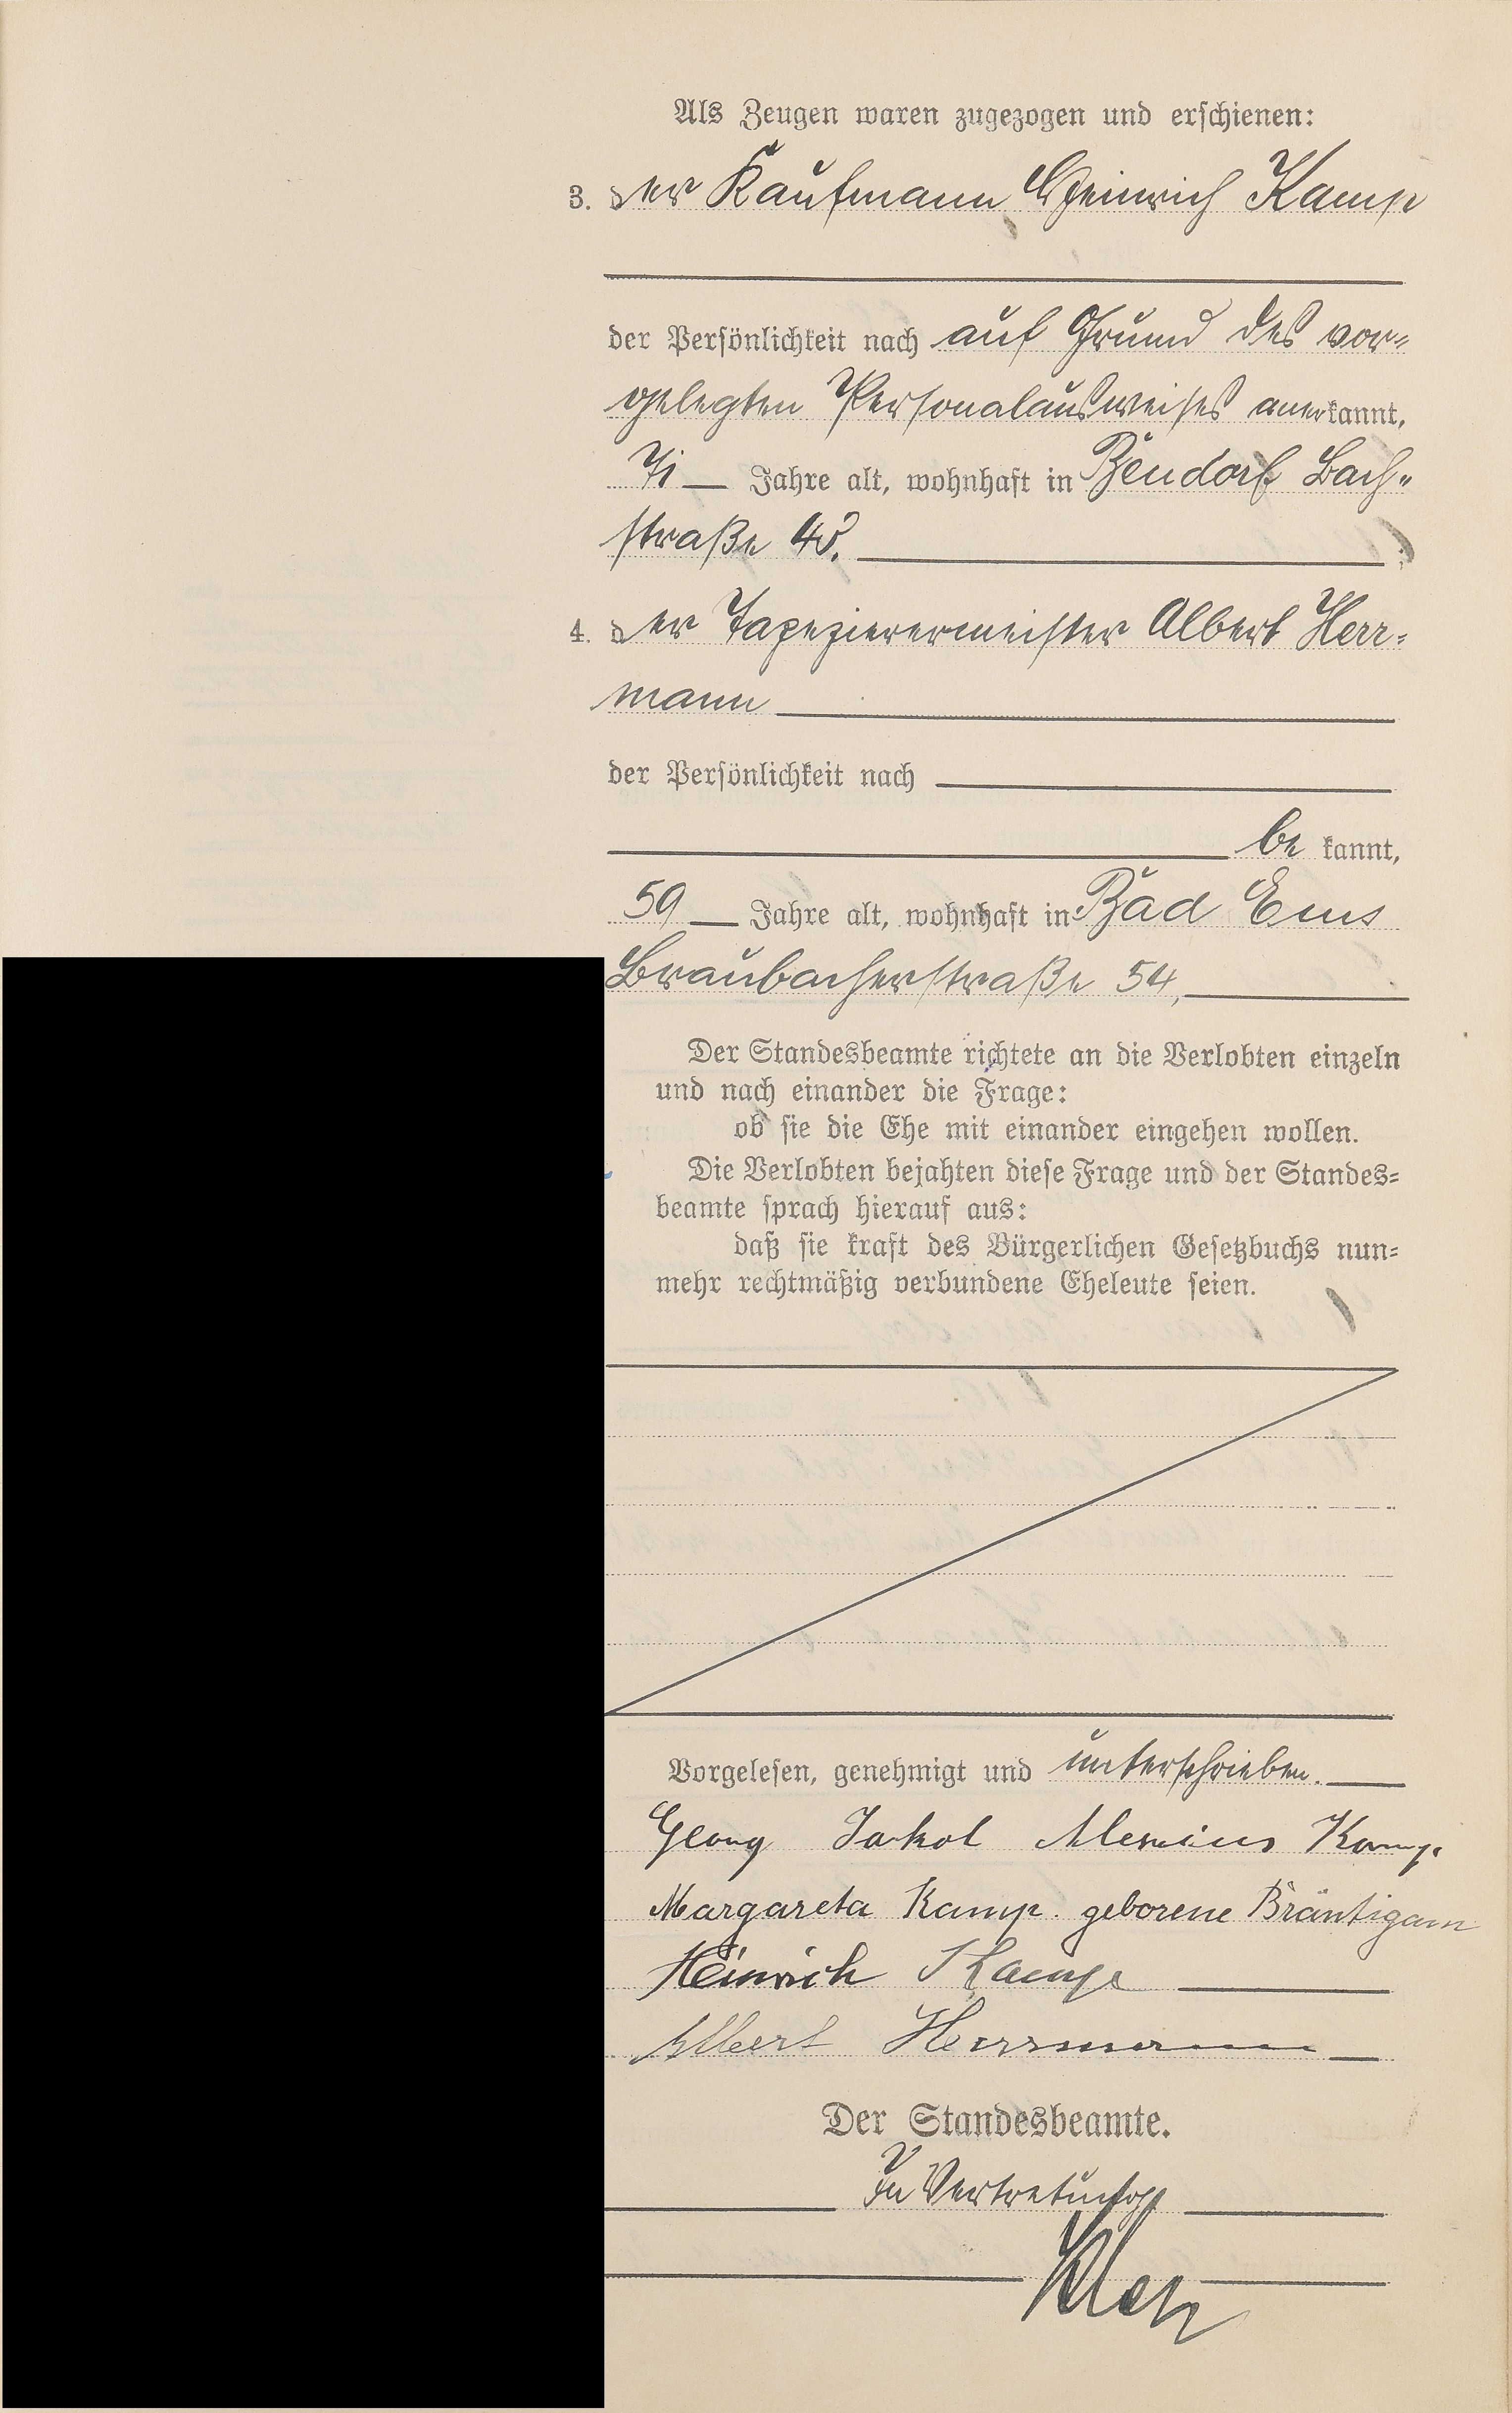 Als Zeugen waren zugezogen und erschienen:
3. der Kaufmann Heinrich Kamp
der Persönlichkeit nach auf Grund des vor=
gelegten Personalausweises anerkannt,
71 Jahre alt, wohnhaft in Bendorf Bach=
straße
4. der Tapezierermeister Albert Herr=
mann
der Persönlichkeit nach
be kannt,
59 Jahre alt, wohnhaft in Bad Ems
Braubacherstraße 54,
Der Standesbeamte richtete an die Verlobten einzeln
und nach einander die Frage:
ob sie die Ehe mit einander eingehen wollen.
Die Verlobten bejahten diese Frage und der Standes=
beamte sprach hierauf aus:
daß sie kraft des Bürgerlichen Gesetzbuchs nun=
mehr rechtmäßig verbundene Eheleute seien.
Vorgelesen, genehmigt und unterschrieben.
Georg Jakob Kamp.
Margareta Kamp. geborene Bräutigam
Heinrich Kamp
Albert Herrmann
Der Standesbeamte.
In Vertretung